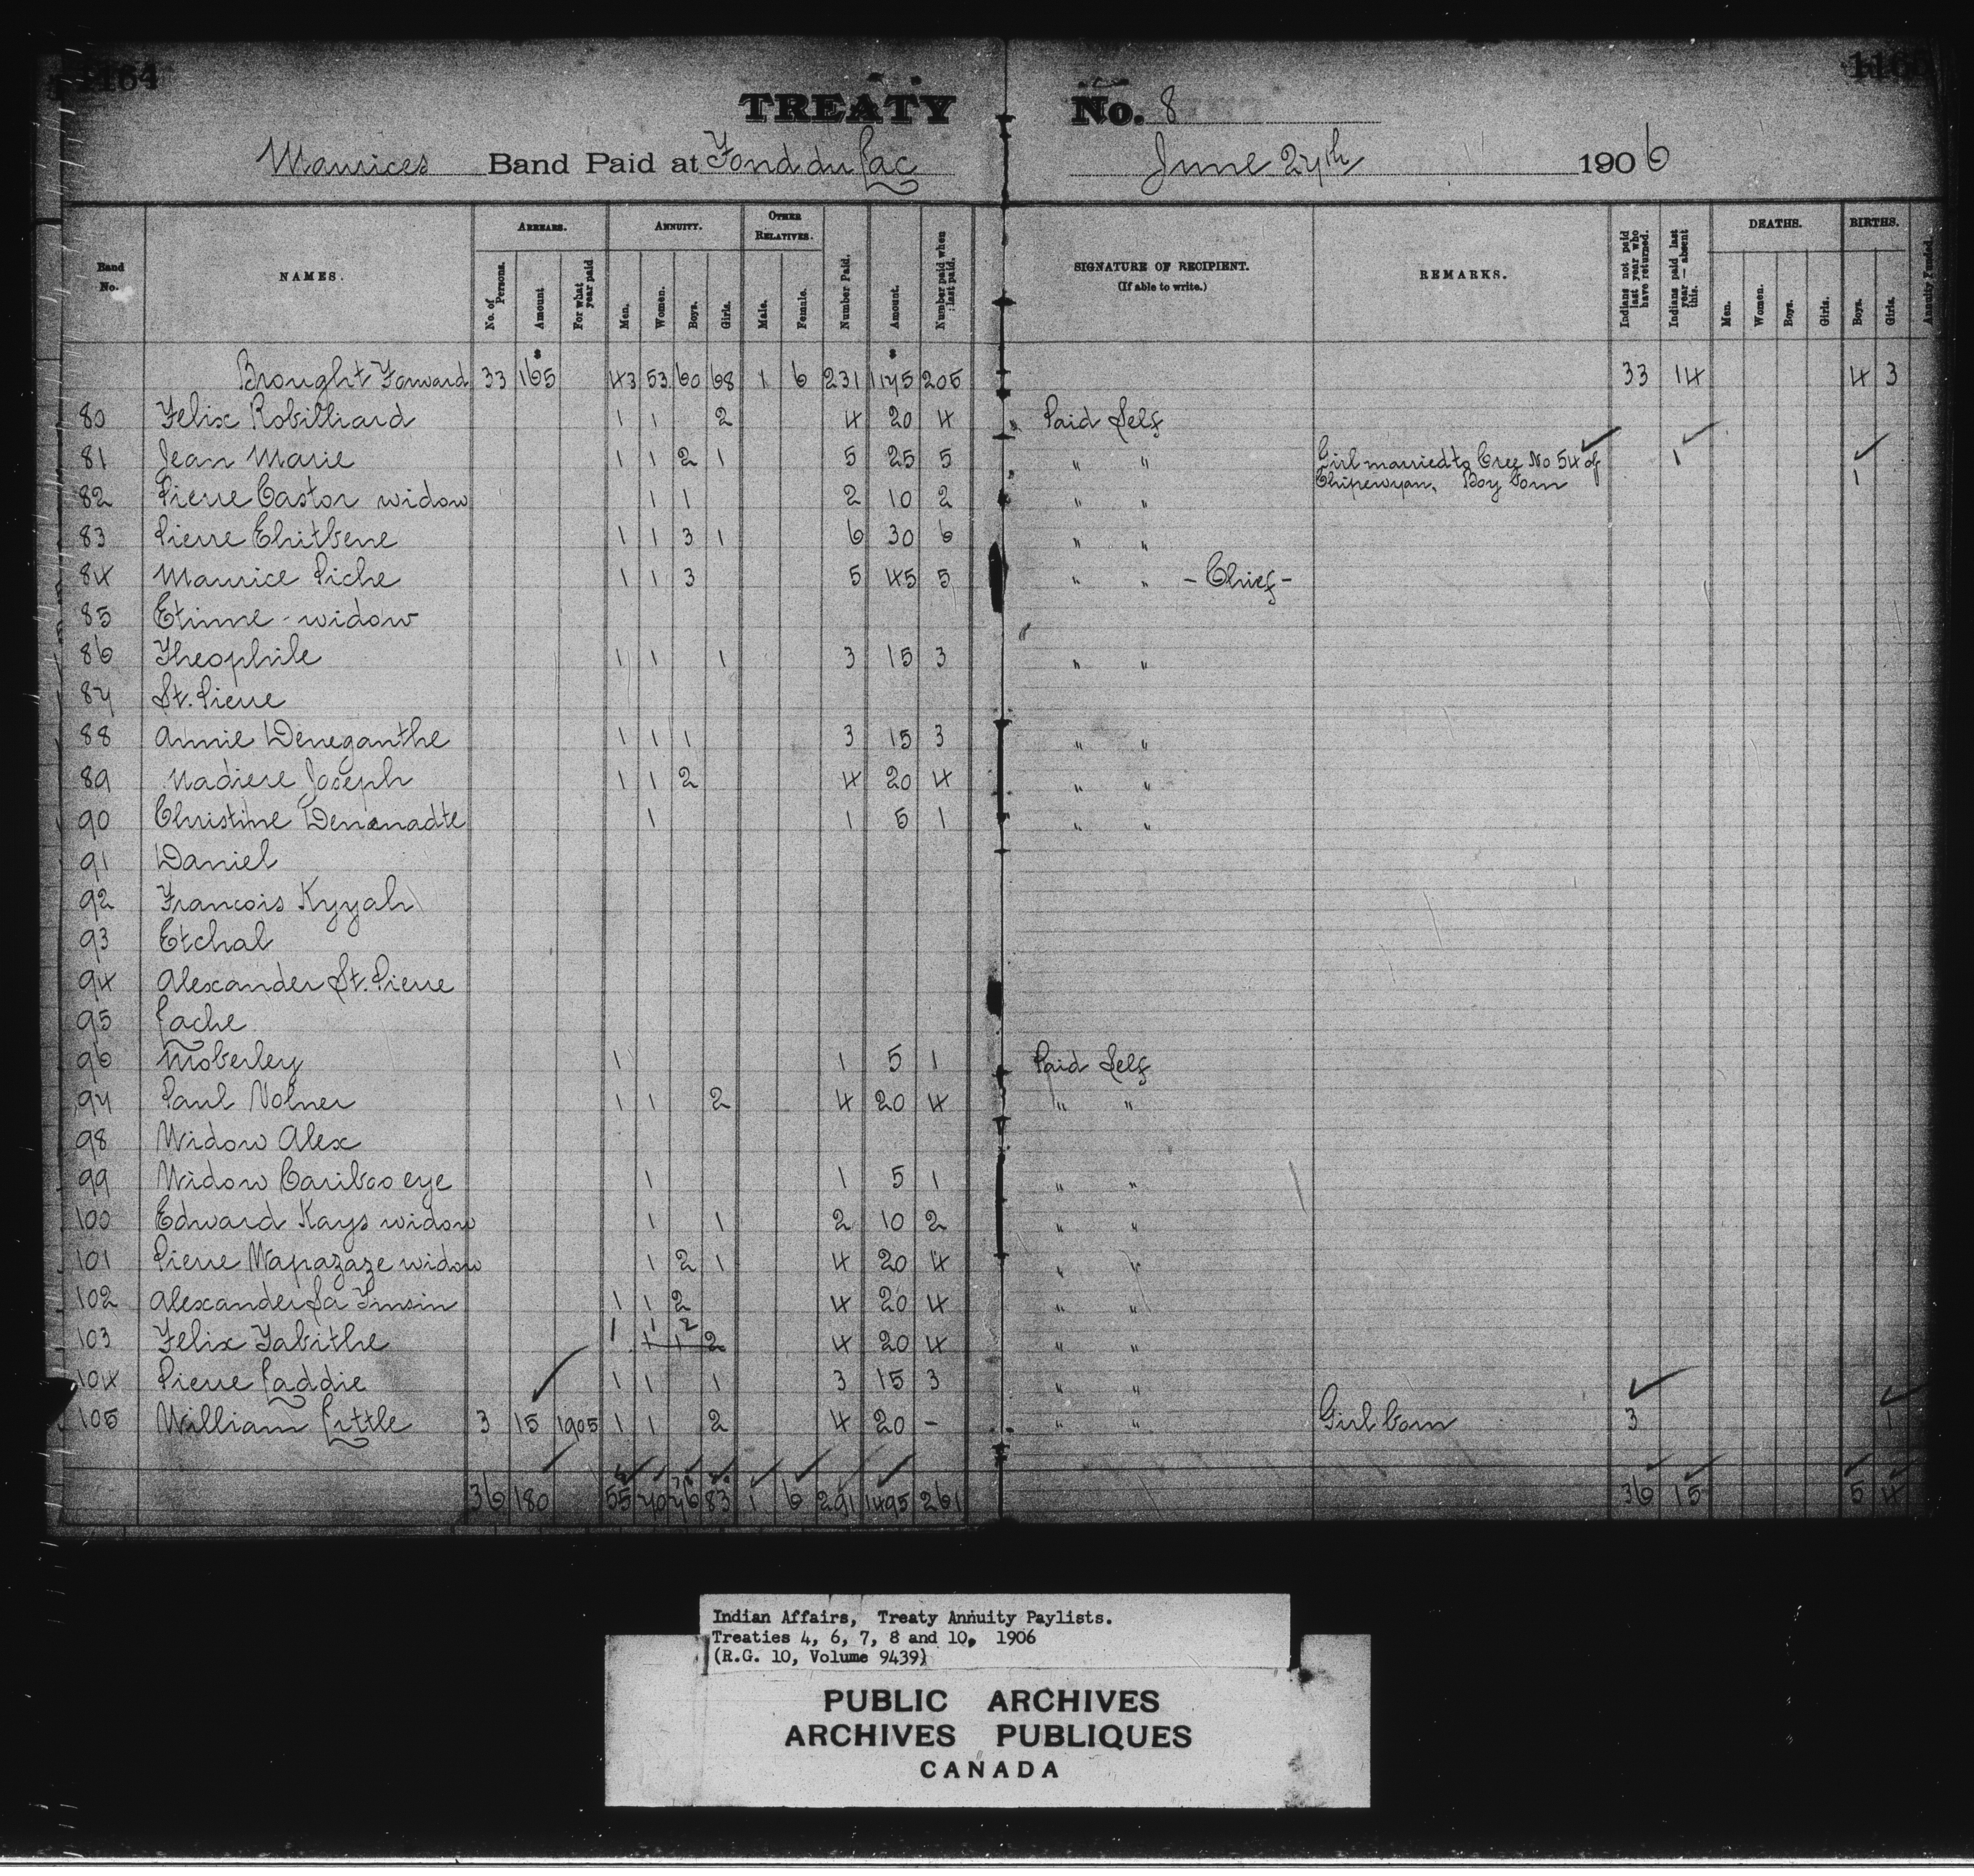 1164
TREATY No. 8
Maurices Band Paid at Fond du Lac June 27th 1906
Band No. NAMES. ARREARS. No. of Persons. Amount For what year paid ANNUITY. Men. Women. Boys. Girls. OTHER RELATIVES. Male. Female. Number Paid. Amount. Number paid when last paid. SIGNATURE OF RECIPIENT. (If able to write.) REMARKS. Indians not paid last year who have returned. Indians paid last year — absent this. DEATHS. Men. Women. Boys. Girls. BIRTHS. Boys. Girls. Annuity Funded.
Brought Forward 33 165 43 53 60 68 1 6 231 1175 205 33 14 4 3
80 Felix Robilliard 1 1 2 4 20 4 Paid Self
81 Jean Marie 1 1 2 1 5 25 5 " " Girl married to Cree No 54 of 1 1
82 Pierre Castor widow 1 1 2 10 2 " " Chipewyan. Boy born
83 Pierre Ehitbene 1 1 3 1 6 30 6 " "
84 Maurice Piche 1 1 3 5 45 5 " " - Chief -
85 Etinne - widow
86 Theophile 1 1 1 3 15 3 " "
87 St. Pierre
88 Annie Deneganthe 1 1 1 3 15 3 " "
89 Nadiere Joseph 1 1 2 4 20 4 " "
90 Christine Denenadte 1 1 5 1 " "
91 Daniel
92 Francois Kyyah
93 Etchal
94 Alexander St. Pierre
95 Lache
96 Moberley 1 1 5 1 Paid Self
97 Paul Nolner 1 1 2 4 20 4 " "
98 Widow Alex
99 Widow Cariboo eye 1 1 5 1 " "
100 Edward Kays widow 1 1 2 10 2 " "
101 Pierre Mapazaze widow 1 2 1 4 20 4 " "
102 Alexander La Imsin 1 1 2 4 20 4 " "
103 Felix Tabithe 1 1 2 1 1 2 4 20 4 " "
104 Pierre Laddie 1 1 1 3 15 3 " "
105 William Little 3 15 1905 1 1 2 4 20 - " " Girl born 3 1
36 180 55 70 76 83 1 6 291 1495 261 36 15 5 4
Indian Affairs, Treaty Annuity Paylists.
Treaties 4, 6, 7, 8 and 10, 1906
(R.G. 10, Volume 9439)
PUBLIC ARCHIVES
ARCHIVES PUBLIQUES
CANADA